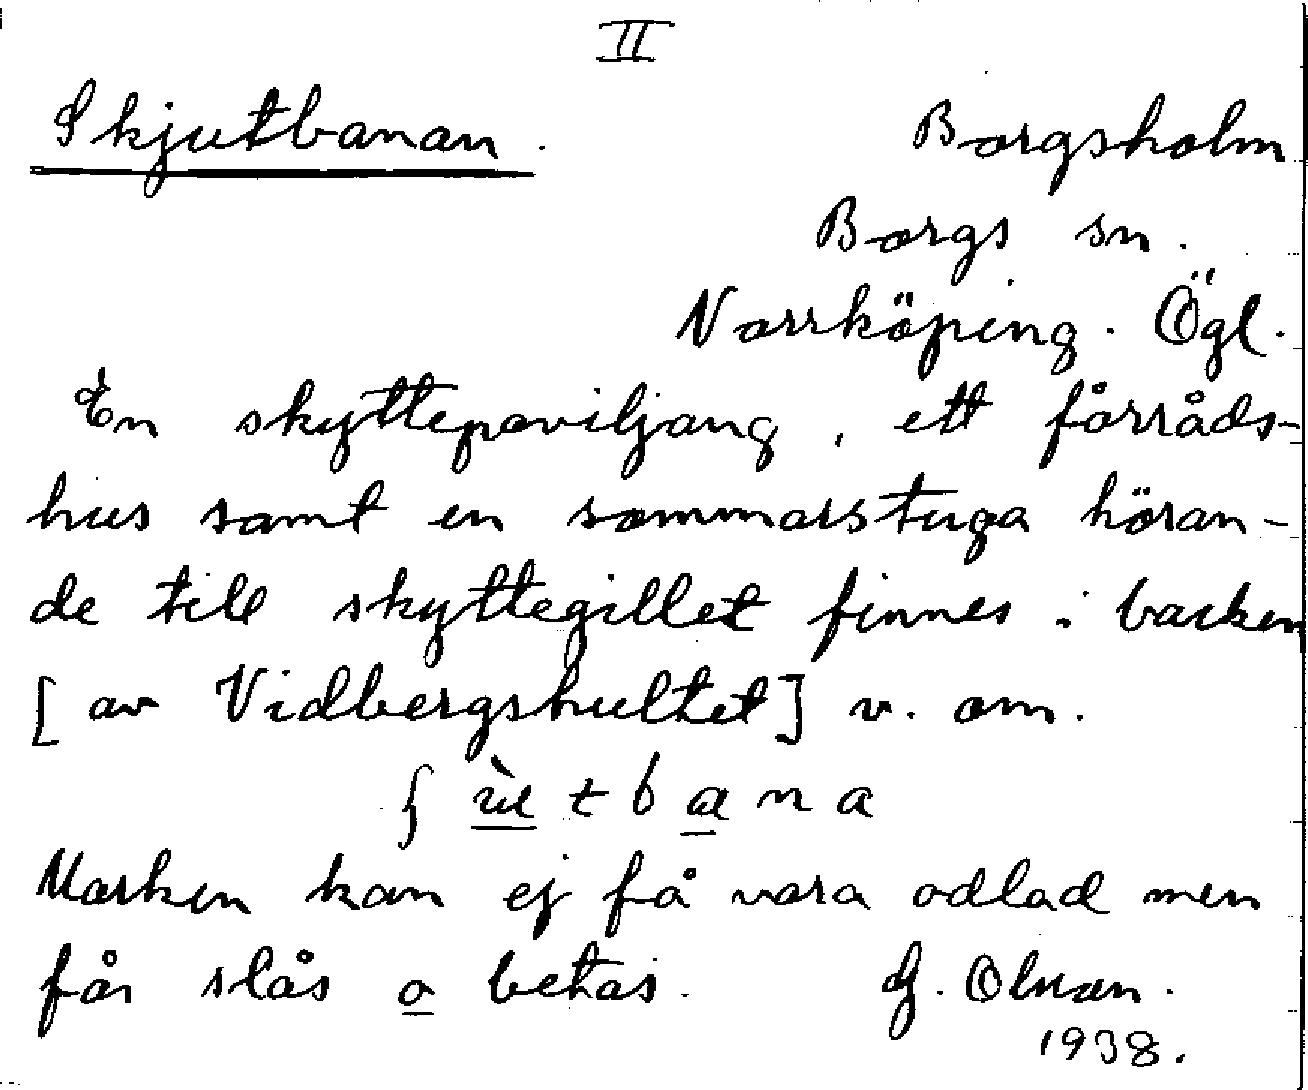 II
Skjutbanan.
Borgsholm
Borgs sn.
Norrköping. Ögl.
En skyttepaviljang, ett förråds-
hus samt en sommarstuga höran-
de till skyttegillet finnes i backen
[av Vidbergshultet] v. om.
ʃ ùt b a n a
Marken kan ej få vara odlad men
får slås o betas. G. Olson.
1938.